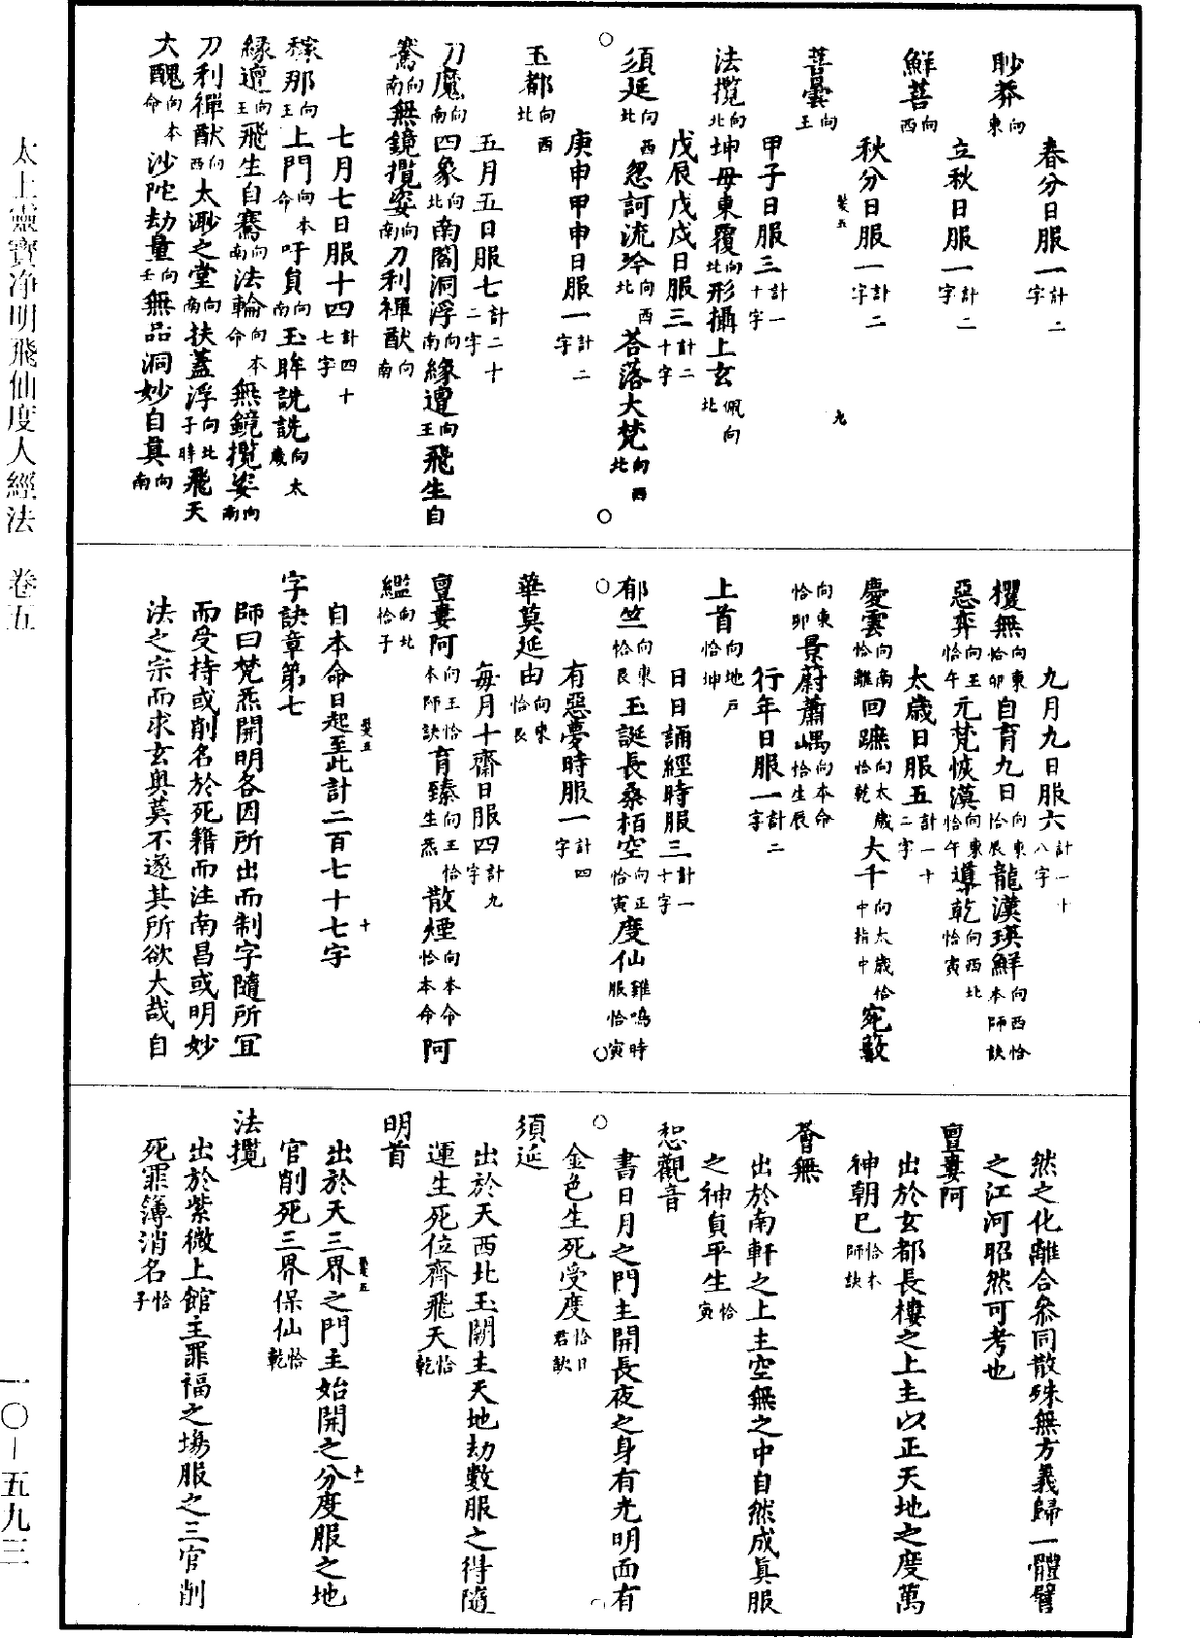 春分日服一計二字
眇莽向東
立秋日服一計二字
鮮菩向西
秋分日服一計二字
菩曇向王
甲子日服三計一十字
法攬向北坤母東覆向北形攝上玄佩向北
戊辰戊戌日服三計二十字
須延向西北忽訶流吟向西北荅落大梵向西北
庚申甲申日服一計二字
玉都向西北
五月五日服七計二十二字
刀魔向南四象向北南閻洞浮向南緣邅向王飛生自
騫向南無鏡攬姿向南刀利禪猷向南
七月七日服十四計四十七字
稼那向王上門向本命吁員向南玉眸詵詵向太歲
緣邅向王飛生自騫向南法輪向本命無鏡攬姿向南
刀利禪猷向西太漻之堂向南扶蓋浮向北子時飛天
大醜向本命沙陀劫量向壬無品洞妙自真向南
九月九日服六計一十八字
櫻無向東恰卯自育九日向東恰辰龍漢瑛鮮向西恰本師訣
惡弈向王恰午元梵恢漠向東恰午導乾向西北恰寅
太歲日服五計一十二字
慶雲向南恰離回蹠向太歲恰乾大千向太歲恰中指中宛藪
向東恰卯景蔚蕭嵎向本命恰生辰
行年日服一計二字
上首向地戶恰坤
日日誦經時服三計一十字
郁竺向東恰艮玉誕長桑栢空向正恰寅度仙雞鳴時服恰寅
有惡夢時服一計四字
華莫延由向東恰艮
每月十齋日服四計九字
亶婁阿向王恰本師訣育臻向王恰生炁散煙向本命恰本命阿
㜮向北恰子
自本命日起至此計二百七十七字
字訣章第七
師曰梵炁開明各因所出而制字隨所宜
而受持或削名於死籍而注南昌或明妙
法之宗而求玄奥莫不遂其所欲大哉自
然之化離合叅同散殊無方義歸一體譬
之江河昭然可考也
亶婁阿
出於玄都長樓之上主以正天地之度萬
神朝巳恰本師訣
薈無
出於南軒之上主空無之中自然成真服
之神貟平生恰寅
惒觀音
書日月之門主開長夜之身有光明面有
金色生死受度恰日君訣
須延
出於天西北玉闕主天地劫數服之得隨
運生死位齊飛天恰乾
明首
出於天三界之門主始開之分度服之地
官削死三界保仙恰乾
法攬
出於紫微上館主罪福之塲服之三官削
死罪簿消名恰子
太上靈寶净明飛仙度人經法　卷五
一〇—五九三